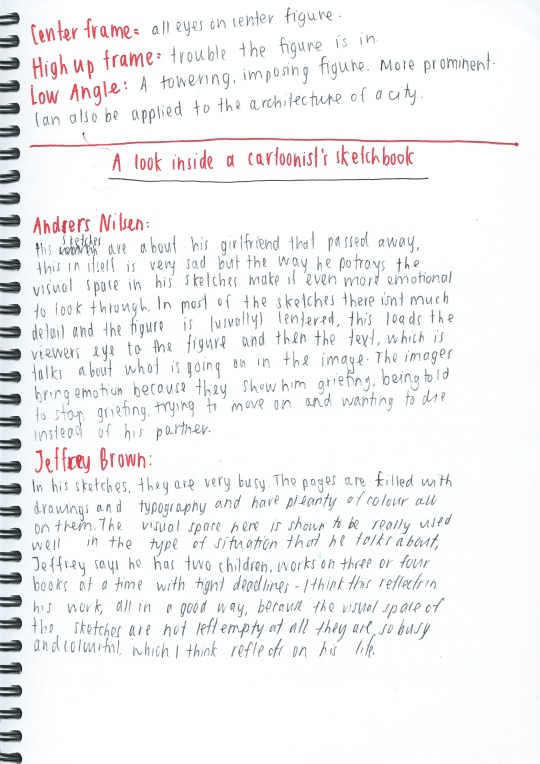 Center frame: all eyes on center figure.
High up frame: trouble the figure is in.
Low Angle: A towering, imposing figure. More prominent.
Can also be applied to the architecture of a city.
A look inside a cartoonist's sketchbook
Anders Nilsen:
His sketches are about his girlfriend that passed away,
this in itself is very sad but the way he potrays the
visual space in his sketches make it even more emotional
to look through. In most of the sketches there isnt much
detail and the figure is (usually) centered, this leads the
viewers eye to the figure and then the text, which is
talks about what is going on in the image. The images
bring emotion because they show him griefing, being told
to stop griefing, trying to move on and wanting to die
instead of his partner.
Jeffrey Brown:
In his sketches, they are very busy. The pages are filled with
drawings and typography and have pleanty of colour all
on them. The visual space here is shown to be really used
well in the type of situation that he talks about,
Jeffrey says he has two children, works on three or four
books at a time with tight deadlines - I think this reflects in
his work, all in a good way, because the visual space of
the sketches are not left empty at all they are so busy
and colourful, which I think reflects on his life.